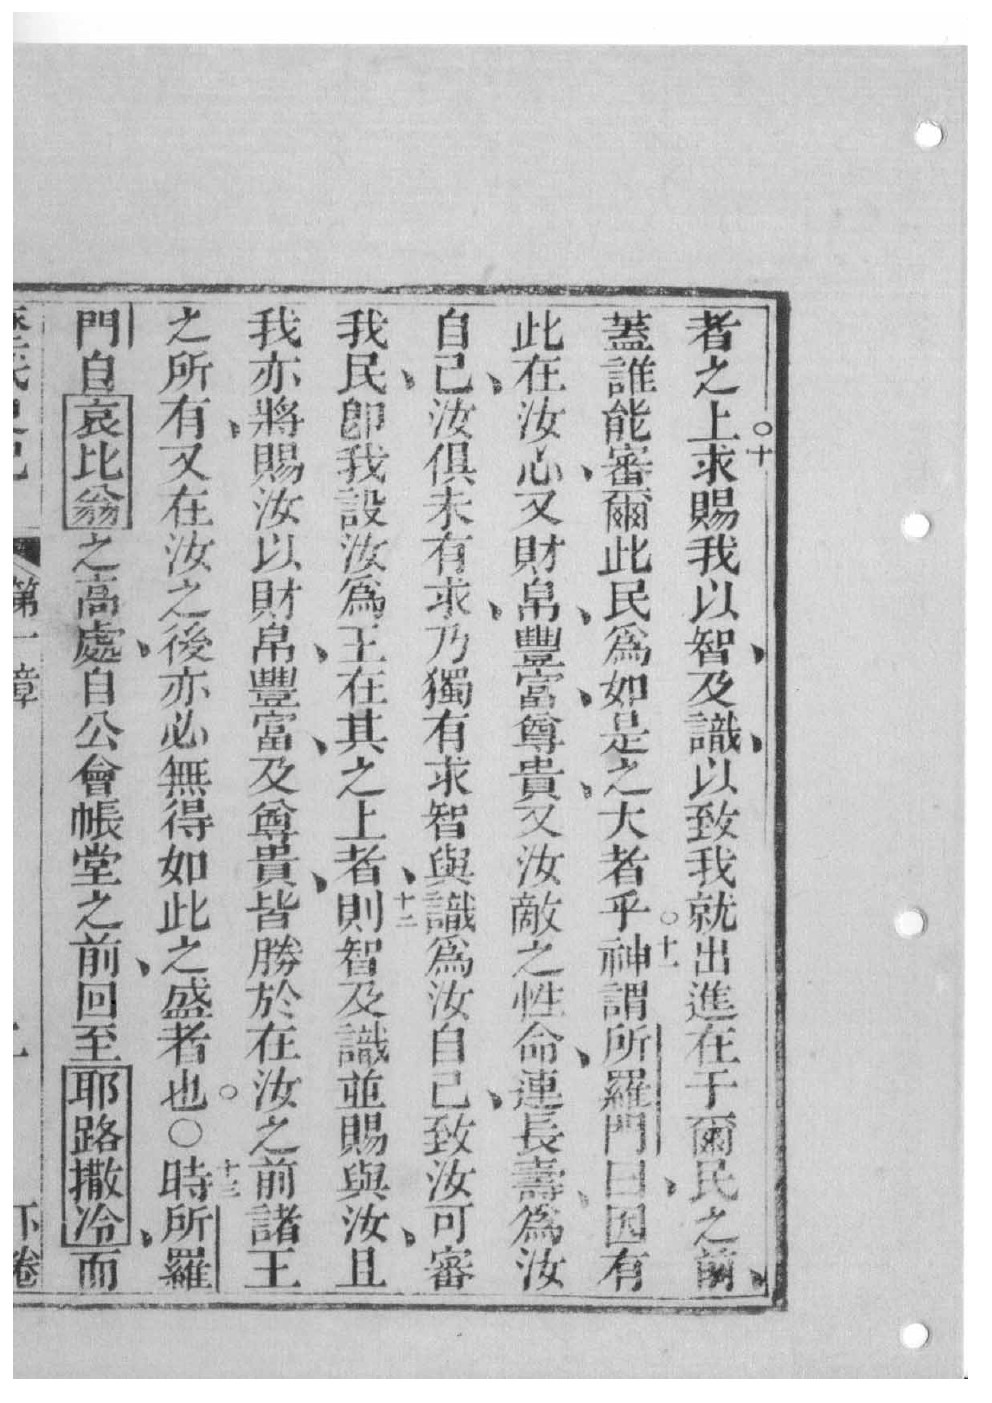 者之上○十求賜我以智、及識、以致我就出進在于爾民之前、
蓋誰能審爾此民爲如是之大者乎○十一神謂所羅門曰、因有
此在汝心、又財帛、豐富、尊貴、又汝敵之性命、連長壽、爲汝
自己、汝俱未有求、乃獨有求智與識爲汝自己、致汝可審
我民、卽我設汝爲王在其之上者、十二則智及識並賜與汝、且
我亦將賜汝以財帛、豐富、及尊貴、皆勝於在汝之前諸王
之所有、又在汝之後亦必無得如此之盛者也○〇十三時所羅
門自哀比翁之高處、自公會帳堂之前、回至耶路撒冷、而
第一章 下卷